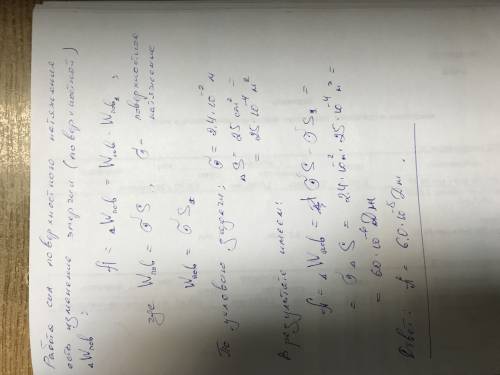 Работа сил поверхностного натяжения
есть изменение энергии (поверхностной)
ΔWпов :
A = ΔWпов = Wпов - Wпов₂ ;
где Wпов = σS , σ - поверхностное
натяжение
Wпов = σS₂
По условию задачи: σ = 2,4·10⁻² м
ΔS = 25 см² =
= 25·10⁻⁴ м²
В результате имеем:
A = ΔWпов = σS - σS₂ =
= σΔS = 2,4·10⁻² м · 25·10⁻⁴ м² =
= 60·10⁻⁶ Дж
Ответ: A = 6,0·10⁻⁵ Дж .